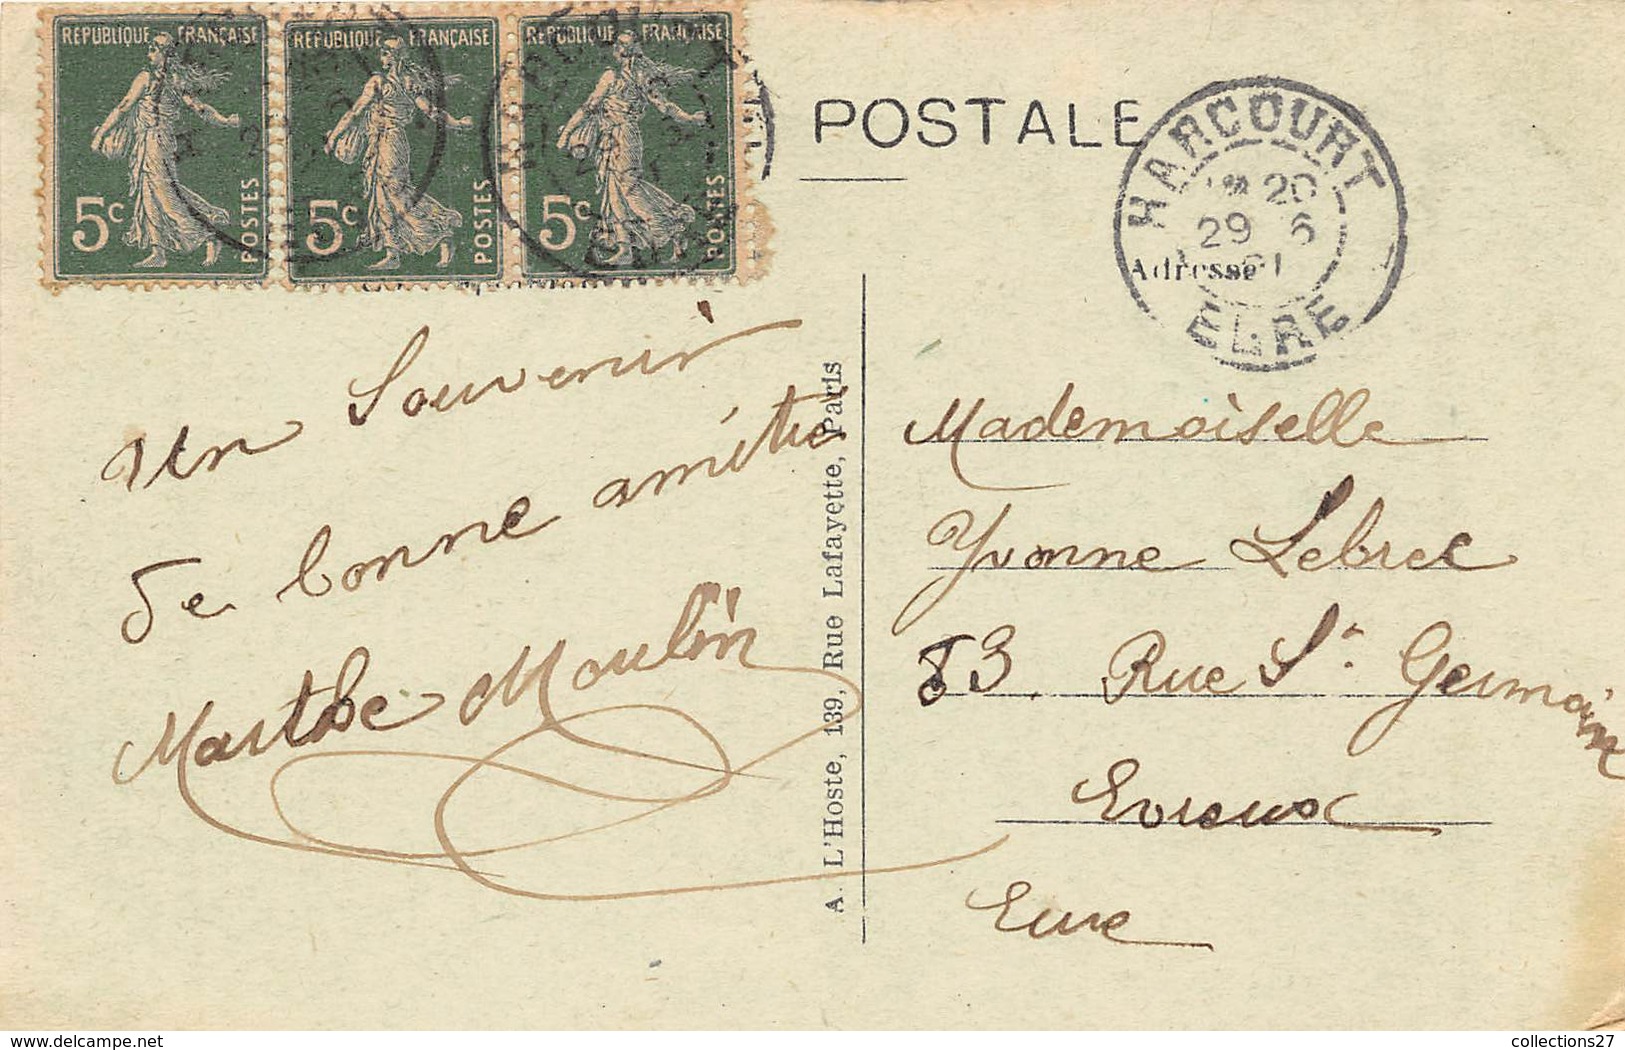 REPUBLIQUE FRANÇAISE
5c POSTES
REPUBLIQUE FRANÇAISE
5c POSTES
REPUBLIQUE FRANÇAISE
5c POSTES
POSTALE
HARCOURT
20
29 6
21
EURE
Adresse
Un Souvenir
de bonne amitié
Marthe Moulin
A. L'Hoste, 139, Rue Lafayette, Paris
Mademoiselle
Yvonne Lebrec
83 Rue St Germain
Evreux
Eure
delcampe.net
collections27